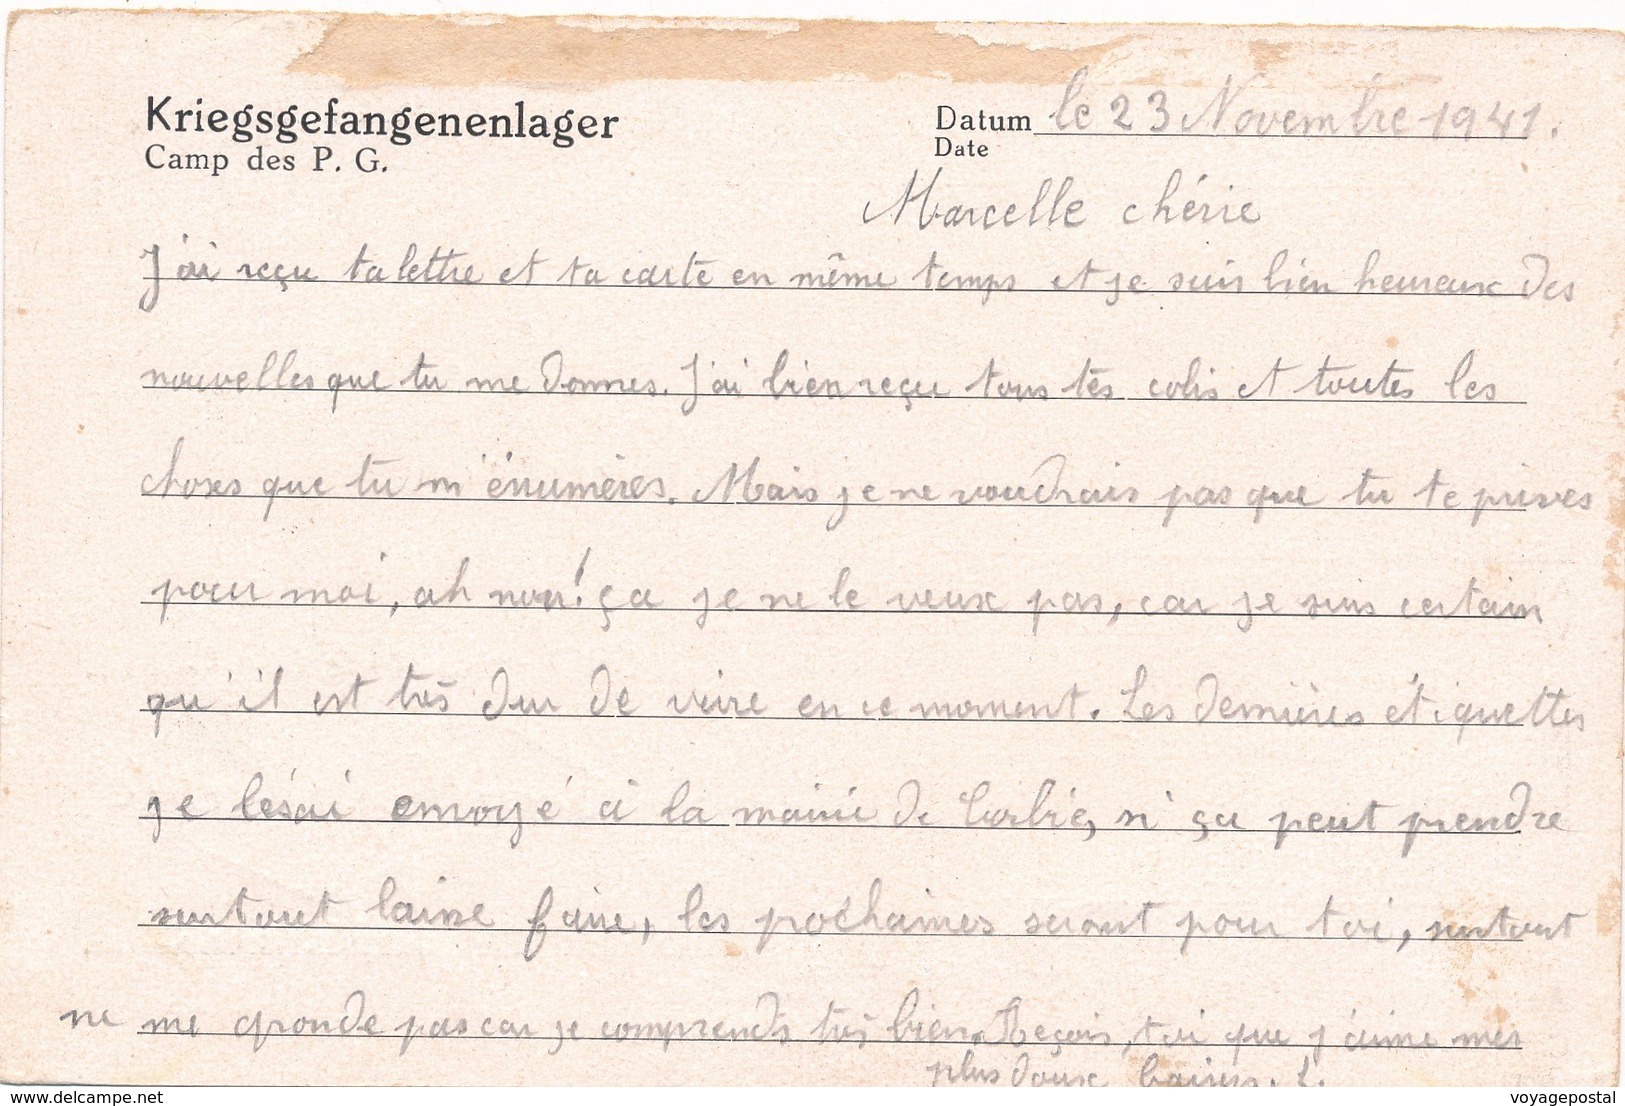 Kriegsgefangenenlager
Camp des P. G.
Datum le 23 Novembre 1941.
Date
Marcelle chérie
J'ai reçu ta lettre et ta carte en même temps et je suis bien heureux des
nouvelles que tu me donnes. J'ai bien reçu tous tes colis et toutes les
choses que tu m'énumères. Mais je ne voudrais pas que tu te prives
pour moi, ah non! ça je ne le veux pas, car je suis certain
qu'il est très dur de vivre en ce moment. Les dernières étiquettes
je les ai envoyé à la mairie de Corbie, si ça peut prendre
surtout laisse faire, les prochaines seront pour toi, surtout
ne me gronde pas car je comprends très bien. Reçois, toi que j'aime mes
plus doux baisers. L.
voyagepostal
© delcampe.net